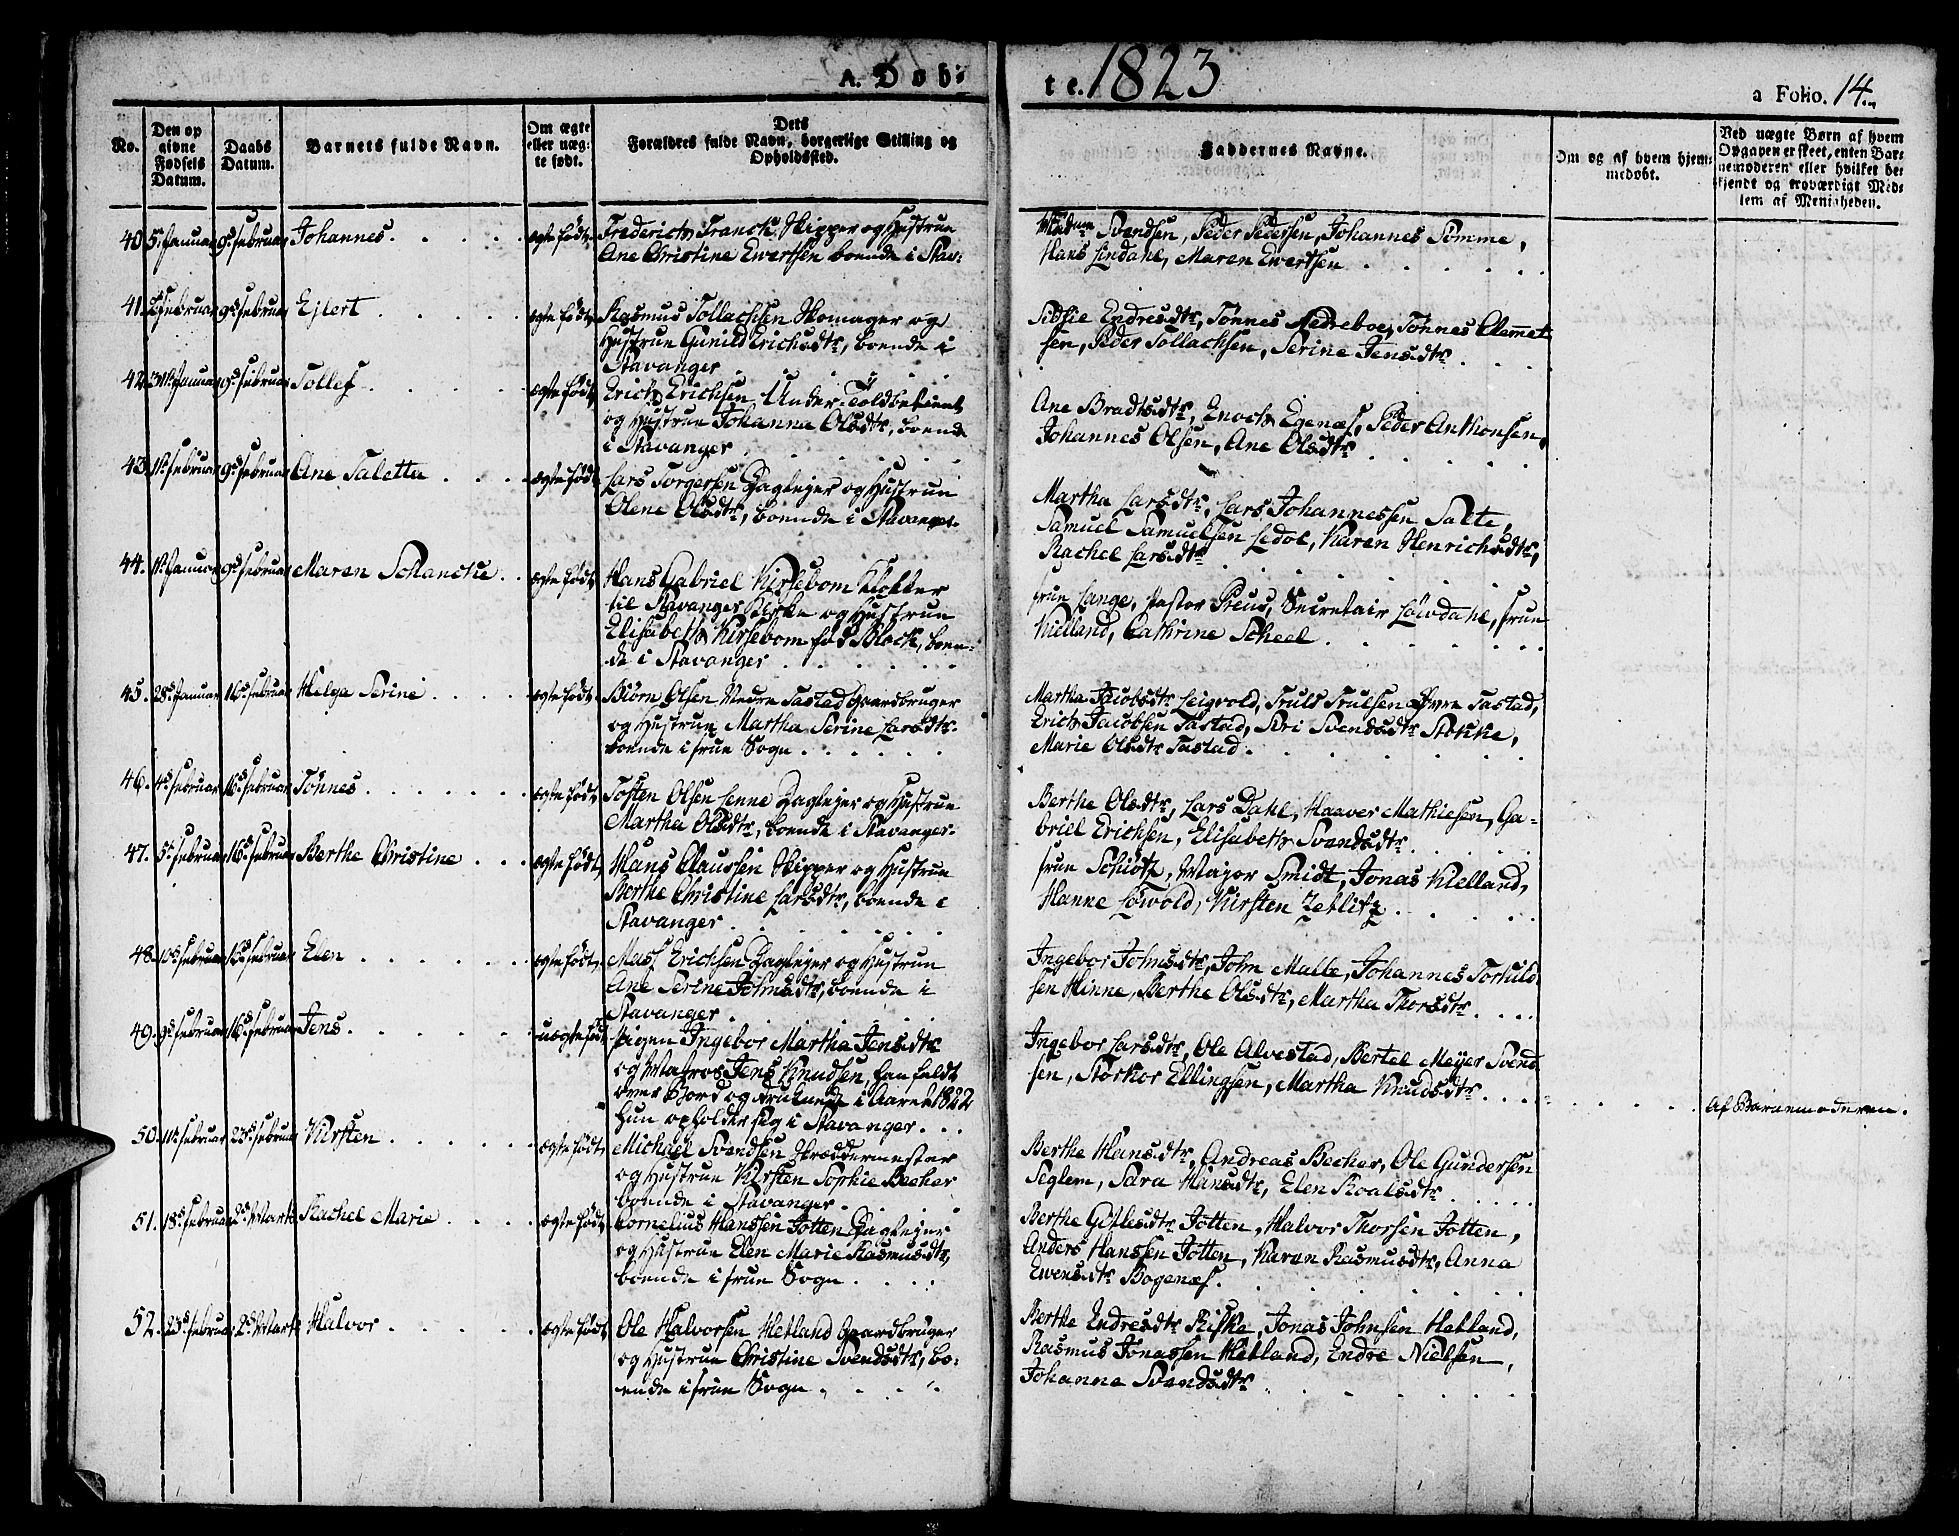 A. Døb=
te. 1823
a Folio. 14.
No.
Den op
givne
Fødsels
Datum.
Daabs
Datum.
Barnets fulde Navn.
Om ægte
eller uæg-
te født.
Dets
Forældres fulde Navn, borgerlige Stilling og
Opholdssted.
Faddernes Navne.
Om og af hvem hjem-
medøbt.
Ved uægte Børn af hvem
Opgaven er skeet, enten Bar-
nemoderen eller hvilket be-
kjendt og troværdigt Med-
lem af Menigheden.
40. 5te Januar 9de Februar Johannes. ægte født.
Frederich Franck, Skipper og Hustrue
Ane Christine Ewertsen boende i Stav:
Madme Svendsen, Peder Pedersen, Johannes Sømme,
Hans Lindahl, Maren Ewertsen
41. Februar 9de Februar Ejlert ægte født
Rasmus Tollachsen Skomager og
Hustrue Gunild Erichsdtr, boende i
Stavanger
Sidsie Endresdtr, Tønnes Nedreboe, Tønnes Clemet
sen, Peder Tollachsen, Serine Jensdtr
42. 31te Januar 9de Februar Tollef ægte født
Erich Erichsen Under-Toldbetient
og Hustrue Johanna Olsdtr, boende
i Stavanger
Ane Bradtsdtr, Enoch Egenæs, Peder Anthonsen,
Johannes Olsen, Ane Olsdtr
43. 1te Februar 9de Februar Ane Taletta ægte født
Lars Torgersen Daglejer og Hustrue
Olene Olsdtr, boende i Stavanger.
Martha Larsdtr, Lars Johannessen Salte,
Samuel Samuelsen Ledol, Karen Henrichsdtr,
Rachel Larsdtr
44. Januar 9de Februar Maren Schancke ægte født
Hans Gabriel Kirsebom Klokker
til Stavanger Kirke og Hustrue
Elisabeth Kirsebom fød Block, boen-
de i Stavanger
frue Lange, Pastor Preus, Secretair Løwdahl, frue
Kielland, Cathrine Scheel
45. 28de Januar 16de Februar Helga Serine ægte født
Biørn Olsen Nedre Tastad Gaardbruger
og Hustrue Martha Serine Larsdtr.
boende i frue Sogn
Martha Jacobsdtr Leigvold, Truls Trulsen Øvre Tastad,
Erich Jacobsen Tastad, Siri Svendsdtr Stokke,
Marie Olsdtr Tastad
46. 4de Februar 16de Februar Tønnes ægte født
Tosten Olsen Lenne Daglejer og Hustrue
Martha Olsdtr, boende i Stavanger.
Berthe Olsdtr, Lars Dahl, Haaver Mathiesen, Ga-
briel Erichsen, Elisabeth Svendsdtr
47. 5te Februar 16de Februar Berthe Christine ægte født
Hans Claussen Skipper og Hustrue
Berthe Christine Larsdtr, boende i
Stavanger
frue Schiøtz, Major Smidt, Jonas Kielland,
Hanne Løwold, Kirsten Zetlitz
48. 10de Februar 16de Februar Elen ægte født
Mass Erichsen Daglejer og Hustrue
Ane Serine Johnsdtr, boende i
Stavanger
Ingebor Johnsdtr, John Malle, Johannes Torkild
sen Hinne, Berthe Olsdtr, Martha Thorsdtr
49. 9de Februar 16de Februar Jens uægte født
Pigen Ingebor Martha Jensdtr
og Matros Jens Knudsen, han faldt
over Bord og druknede i Aaret 1822
hun opholder sig i Stavanger
Ingebor Larsdtr, Ole Alvestad, Bertel Meyer Svend
sen, Storkor Ellingsen, Martha Knudsdtr
Af Barnemoderen.
50. 11te Februar 23de Februar Kirsten ægte født
Michael Svendsen Skræddermester
og Hustrue Kirsten Sophie Becher
boende i Stavanger
Berthe Hansdtr, Andreas Becher, Ole Gundersen
Seglem, Sara Hansdtr, Elen Roalsdtr
51. 18de Februar 2de Marti Rachel Marie ægte født
Cornelius Hanssen Jotten Daglejer
og Hustrue Elen Marie Rasmusdtr,
boende i frue Sogn
Berthe Gitlesdtr Jotten, Halvor Thorsen Jotten,
Anders Hanssen Jotten, Karen Rasmusdtr, Anna
Ewensdtr Bogenæs.
52. 23de Februar 2de Marti Halvor ægte født
Ole Halvorsen Hetland Gaardbruger
og Hustrue Christine Svendsdtr, bo-
ende i frue Sogn
Berthe Endresdtr Riske, Jonas Johnsen Hetland,
Rasmus Jonassen Hetland, Endre Nielsen,
Johanne Svendsdtr